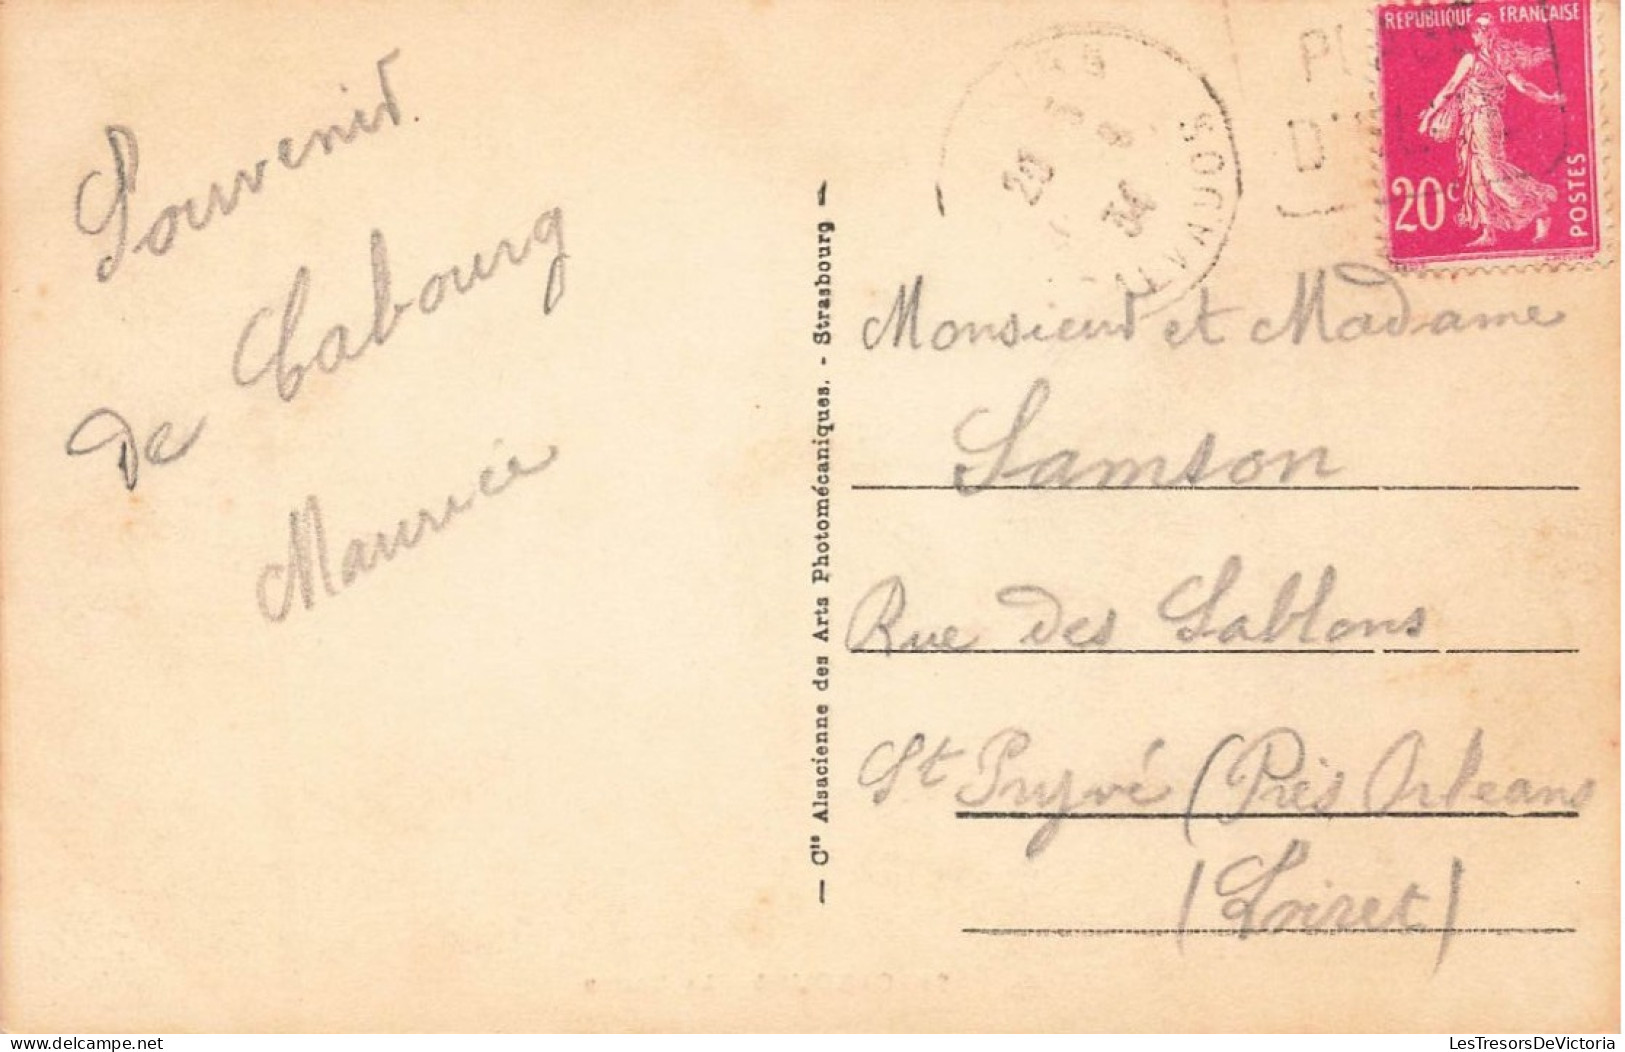 Souvenir
de Cabourg
Maurice
— Cie Alsacienne des Arts Photomécaniques. - Strasbourg —
34
CALVADOS
RÉPUBLIQUE FRANÇAISE
20c
POSTES
Monsieur et Madame
Samson
Rue des Sablons
St Pryvé (Près Orléans
(Loiret)
delcampe.net
LesTresorsDeVictoria